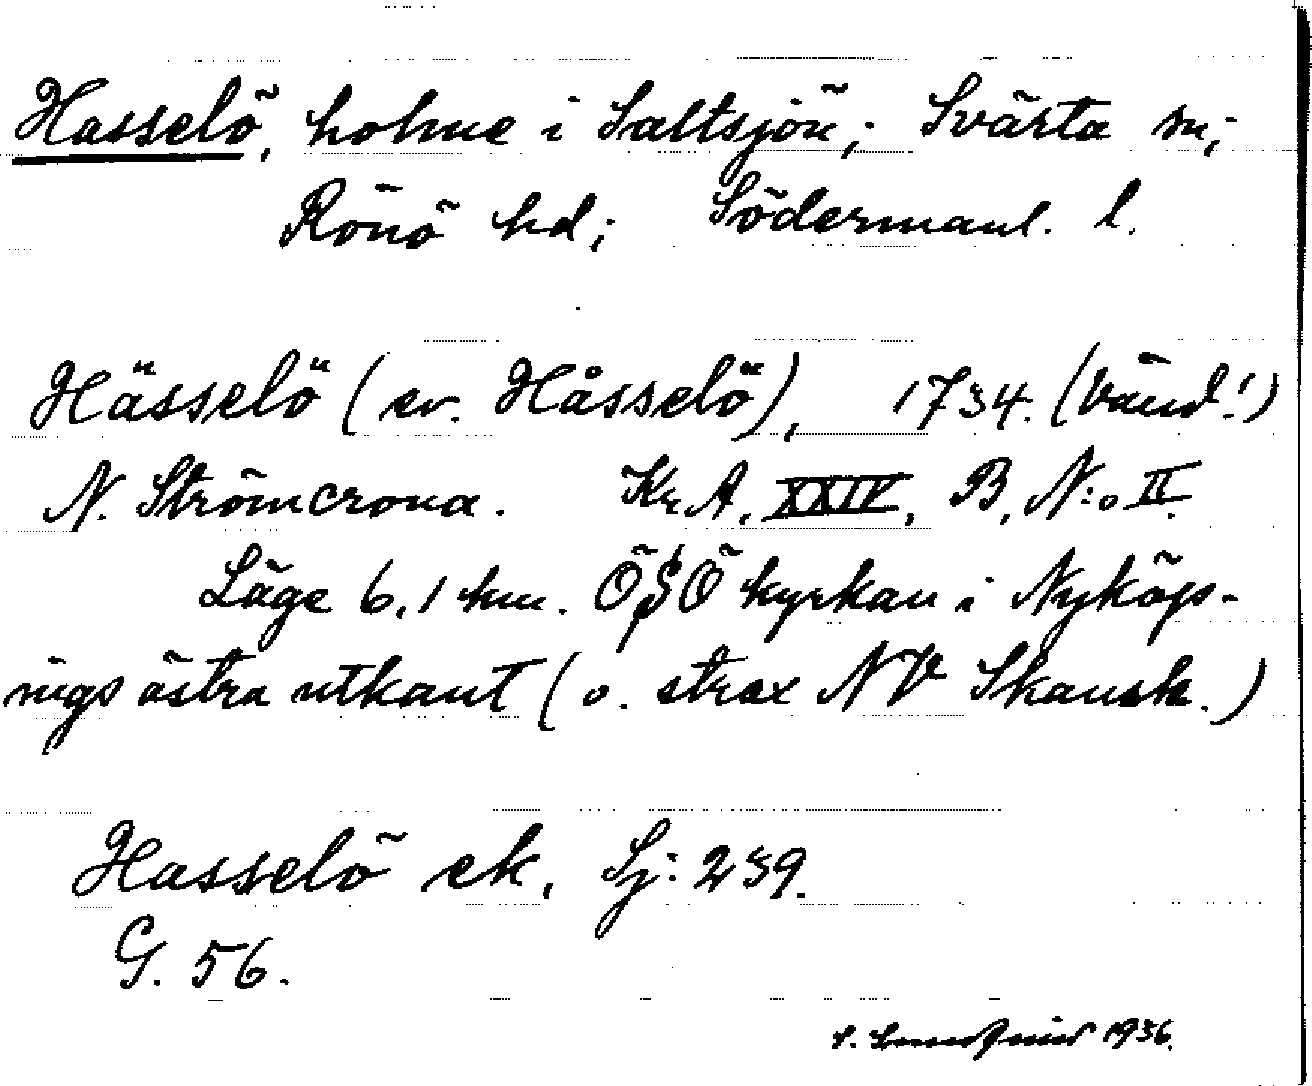 Hasselö, holme i Saltsjön; Svärta sn;
Rönö hd; Södermanl. l.
Hässelö (ev. Håsselö), 1734. (Vänd!)
N. Strömcrona. Kr.A. XXIV, B, N:o II.
Läge 6,1 km. ÖSÖ kyrkan i Nyköp-
nigs östra utkant (o. strax NV Skansh.)
Hasselö ek. Sj: 239.
G. 56.
1936.